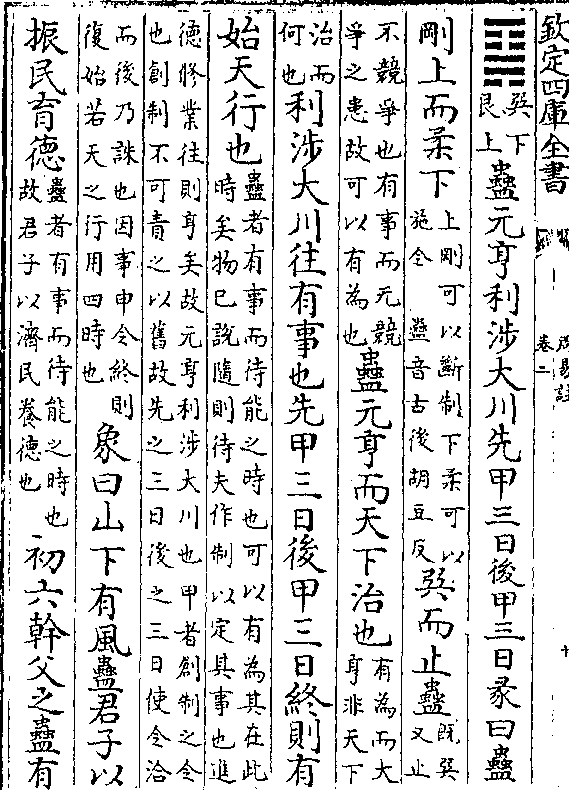 欽定四庫全書 周易註 卷二
䷑巽下艮上蠱元亨利涉大川先甲三日後甲三日彖曰蠱
剛上而柔下上剛可以斷制下柔可以施令 蠱音古後胡豆反巽而止蠱既巽又止
不競爭也有事而无競爭之患故可以有為也蠱元亨而天下治也有為而大亨非天下
治而何也利涉大川往有事也先甲三日後甲三日終則有
始天行也蠱者有事而待能之時也可以有為其在此時矣物已說隨則待夫作制以定其事也進
德修業往則亨矣故元亨利涉大川也甲者創制之令也創制不可責之以舊故先之三日後之三日使令洽
而後乃誅也因事申令終則復始若天之行用四時也象曰山下有風蠱君子以
振民育德蠱者有事而待能之時也故君子以濟民養德也初六幹父之蠱有